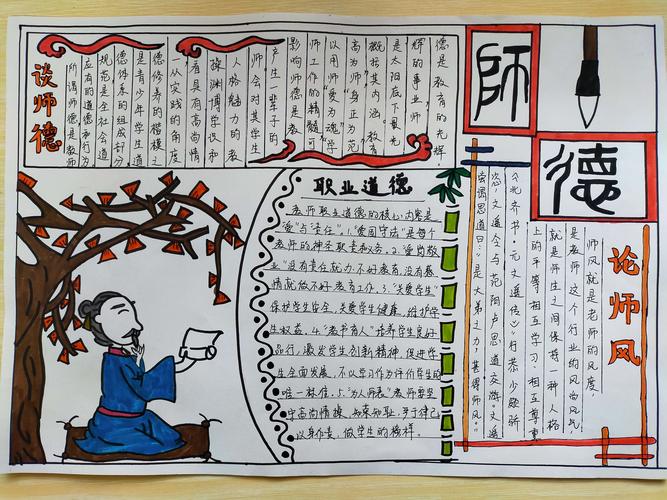 谈师德
所谓师德是教师
应有的道德和行为
规范是全社会道
德体系的组成部分
是青少年学生道
德修养的楷模之
一从实践的角度
看具有高尚情
操渊博学识和
人格魅力的教
师会对其学生
产生一辈子的
影响师德是教
师工作的精髓可
以用师“爱为魂”学
高为师“身正为范
概括其内涵教育
是太阳底下最光
辉的事业师
德是教育的光辉
師
德
职业道德
教师职业道德的核心内容是
“爱”与“责任”。1.“爱国守法”是每个
教师的神圣职责和义务。2.“爱岗敬
业”没有责任就办不好教育，没有感
情就做不好教育工作。3.“关爱学生”
保护学生安全，关爱学生健康，维护学
生权益。4.“教书育人”培养学生良好
品行，激发学生创新精神，促进学
生全面发展，不以学习作为评价学生的
唯一标准。5.“为人师表”教师要坚
守高尚情操，知荣知耻，严于律己
以身作责，做学生的榜样。
论师风
师风就是老师的风度
是教师这个行业的风尚风气，
就是师生之间保持一种人格
上的平等相互学习、相互尊重
《北齐书·元文遥传》行恭少颇骄
恣，文遥令与范阳卢思道交游。文遥
尝谓思道曰：“是大弟之力，甚得师风。”